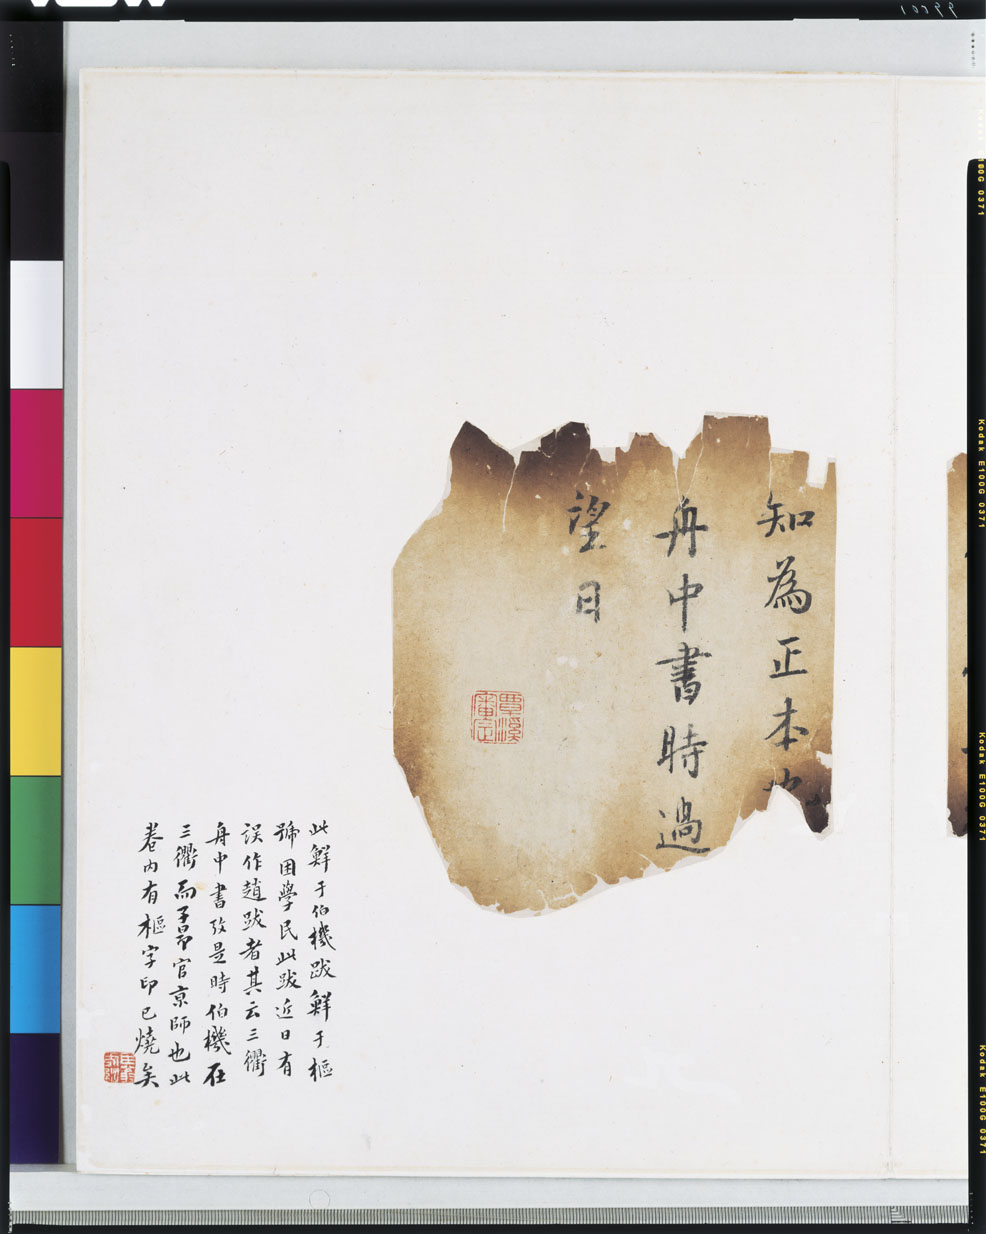 知為正本也
舟中書時過
望日
覃溪審定
此鮮于伯機跋鮮于樞
號困學民此跋近日有
誤作趙跋者其云三衢
舟中書攷是時伯機在
三衢而子昂官京師也此
卷內有樞字印已燒矣
Kodak E100G 0371
Kodak E100G 0371
Kodak E100G 0371